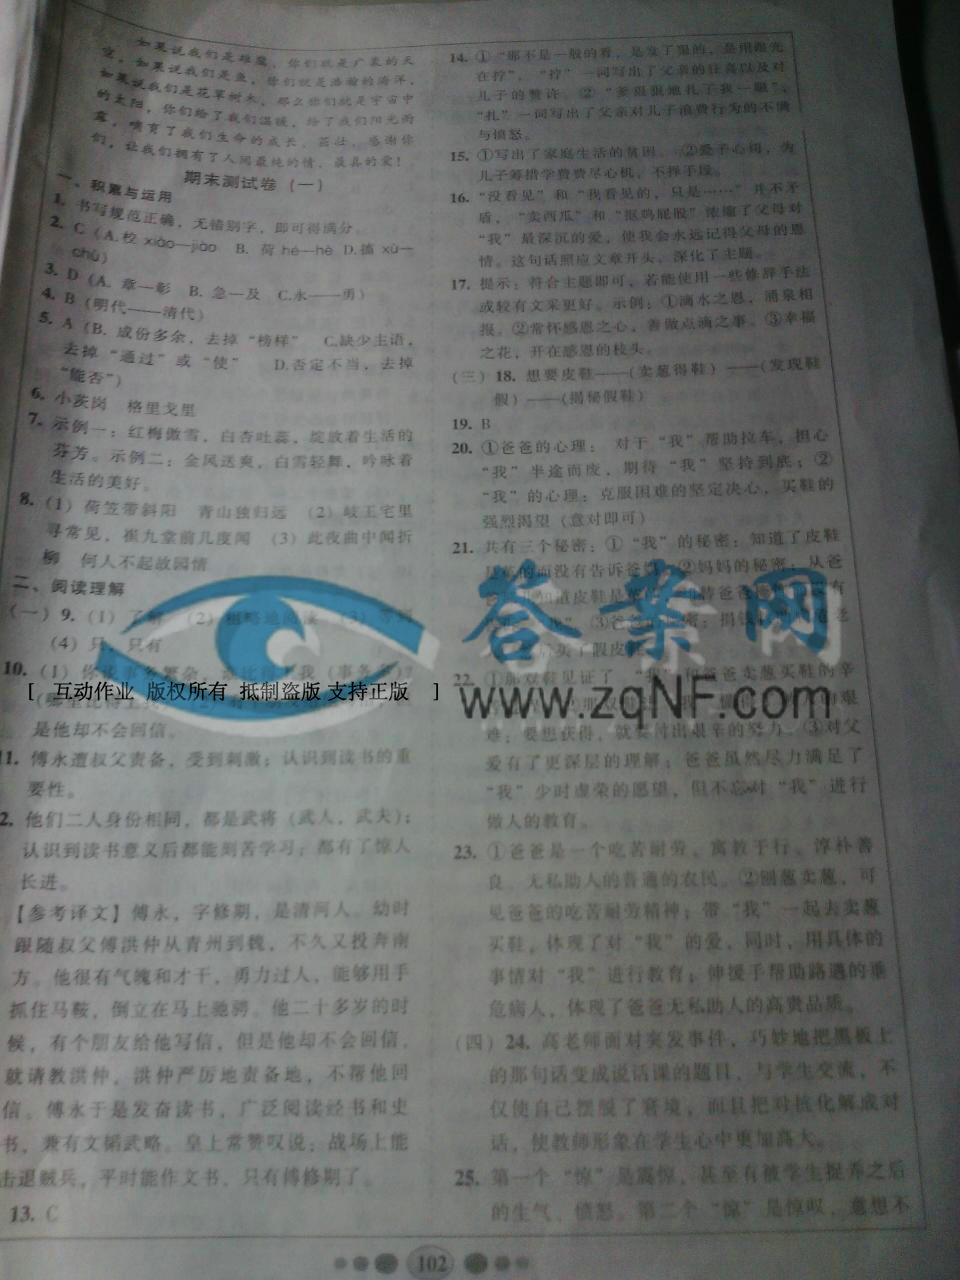 如果说我们是雄鹰，你们就是广袤的天
空，如果说我们是鱼，你们就是浩瀚的海洋，
如果说我们是花草树木，那么你们就是宇宙中
的太阳，你们给了我们温暖，给了我们阳光雨
露，哺育了我们生命的成长、茁壮，感谢你
们，让我们拥有了人间最纯的情、最真的爱！
期末测试卷（一）
一、积累与运用
1. 书写规范正确，无错别字，即可得满分。
2. C（A.校 xiào—jiào B. 荷 hé—hè D.搐 xù—
chù）
3. D（A. 章—彰 B. 急—及 C.永—勇）
4. B（明代——清代）
5. A（B. 成份多余，去掉“榜样” C.缺少主语，
去掉“通过”或“使” D.否定不当，去掉
“能否”）
6. 小茨岗 格里戈里
7. 示例一：红梅傲雪，白杏吐蕊，绽放着生活的
芬芳。示例二：金风送爽，白雪轻舞，吟咏着
生活的美好。
8. （1）荷笠带斜阳 青山独归远 （2）岐王宅里
寻常见，崔九堂前几度闻 （3）此夜曲中闻折
柳 何人不起故园情
二、阅读理解
（一）9. （1）了解 （2）粗略地阅读 （3）等到
（4）只，只有
10.
[ 互动作业 版权所有 抵制盗版 支持正版 ]
是他却不会回信。
11. 傅永遭叔父责备，受到刺激；认识到读书的重
要性。
2. 他们二人身份相同，都是武将（武人，武夫）；
认识到读书意义后都能刻苦学习；都有了惊人
长进。
【参考译文】傅永，字修期，是清河人。幼时
跟随叔父傅洪仲从青州到魏，不久又投奔南
方。他很有气魄和才干，勇力过人，能够用手
抓住马鞍，倒立在马上驰骋。他二十多岁的时
候，有个朋友给他写信，但是他却不会回信。
就请教洪仲，洪仲严厉地责备他，不帮他回
信。傅永于是发奋读书，广泛阅读经书和史
书，兼有文韬武略。皇上常赞叹说：战场上能
击退贼兵，平时能作文书，只有傅修期了。
13. C
14. ①“那不是一般的看，是发了狠的，是用眼光
在拧”，“拧”一词写出了父亲的狂喜以及对
儿子的赞许。②“爹狠狠地扎了我一眼”，
“扎”一词写出了父亲对儿子浪费行为的不满
与愤怒。
15. ①写出了家庭生活的贫困。②爱子心切，为
儿子筹措学费费尽心机，不择手段。
16. “没看见”和“我看见的，只是……”并不矛
盾，“卖西瓜”和“抠鸡屁股”浓缩了父母对
“我”最深沉的爱，使我会永远记得父母的恩
情。这句话照应文章开头，深化了主题。
17. 提示：符合主题即可，若能使用一些修辞手法
或较有文采更好。示例：①滴水之恩，涌泉相
报。②常怀感恩之心，善做点滴之事。③幸福
之花，开在感恩的枝头。
（三）18. 想要皮鞋——（卖葱得鞋）——（发现鞋
假）——（揭秘假鞋）
19. B
20. ①爸爸的心理： 对于“我”帮助拉车，担心
“我”半途而废，期待“我”坚持到底；②
“我”的心理：克服困难的坚定决心，买鞋的
强烈渴望（意对即可）
21. 共有三个秘密：①“我”的秘密：知道了皮鞋
是革的而没有告诉爸爸；②妈妈的秘密：从爸
答案网
www.zqNF.com
22. ①那双鞋见证了“我”和爸爸卖葱买鞋的辛
难；要想获得，就要付出艰辛的努力。③对父
爱有了更深层的理解；爸爸虽然尽力满足了
“我”少时虚荣的愿望，但不忘对“我”进行
做人的教育。
23. ①爸爸是一个吃苦耐劳、寓教于行、淳朴善
良、无私助人的普通的农民。②刨葱卖葱，可
见爸爸的吃苦耐劳精神；带“我”一起去卖葱
买鞋，体现了对“我”的爱，同时，用具体的
事情对“我”进行教育；伸援手帮助路遇的垂
危病人，体现了爸爸无私助人的高贵品质。
（四）24. 高老师面对突发事件，巧妙地把黑板上
的那句话变成说话课的题目，与学生交流，不
仅使自己摆脱了窘境，而且把对抗化解成对
话，使教师形象在学生心中更加高大。
25. 第一个“惊”是震惊，甚至有被学生捉弄之后
的生气、愤怒。第二个“惊”是惊叹，意想不
102